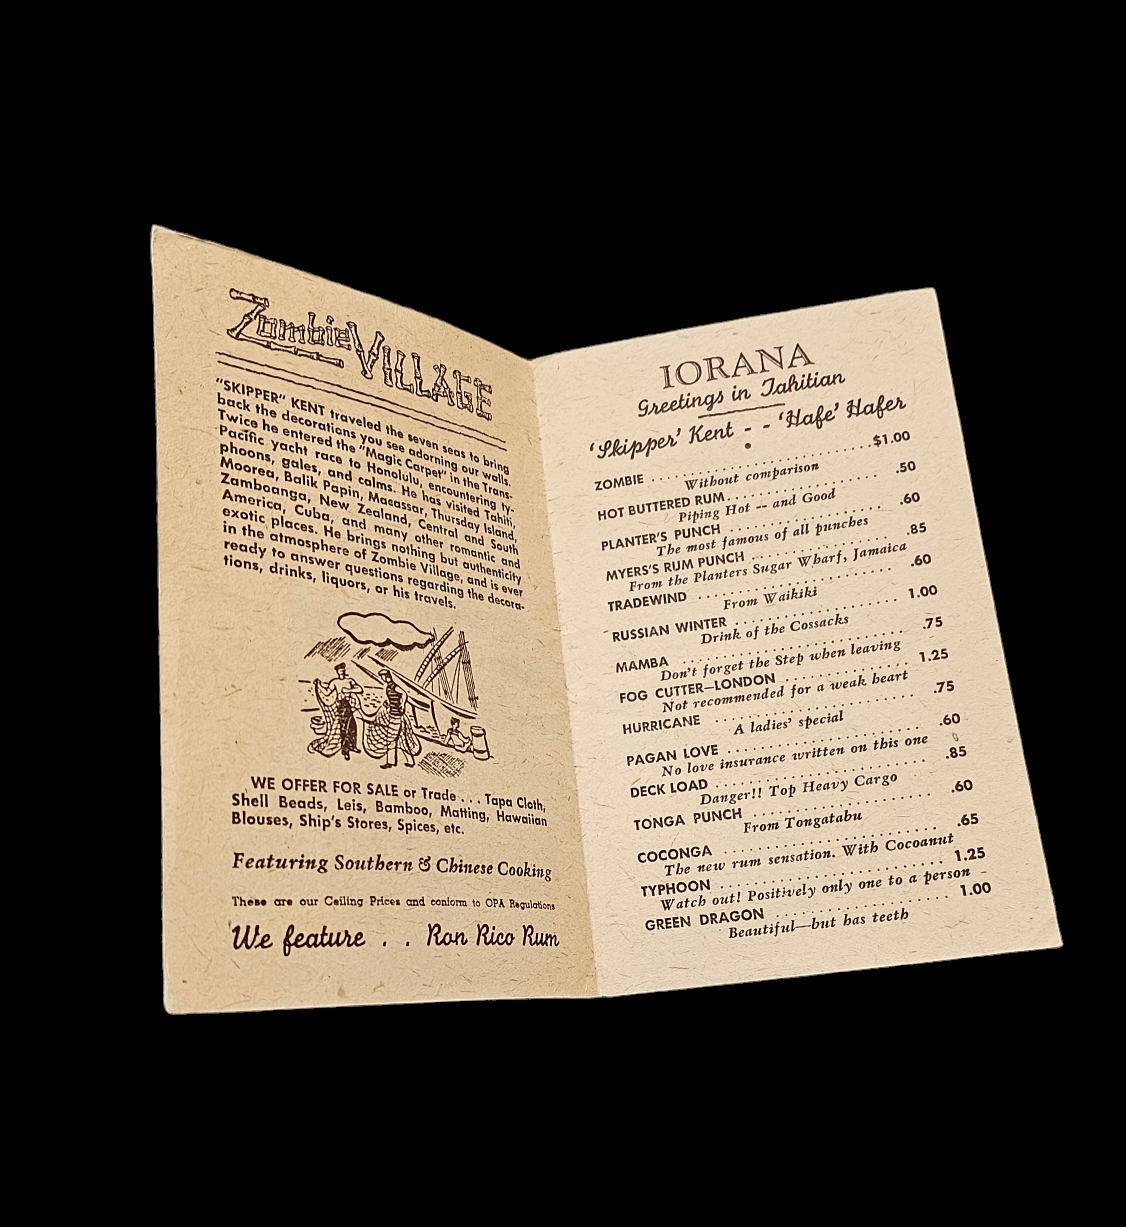 Zombie VILLAGE
"SKIPPER" KENT traveled the seven seas to bring
back the decorations you see adorning our walls.
Twice he entered the "Magic Carpet" in the Trans-
Pacific yacht race to Honolulu, encountering ty-
phoons, gales, and calms. He has visited Tahiti,
Moorea, Balik Papin, Macassar, Thursday Island,
Zamboanga, New Zealand, Central and South
America, Cuba, and many other romantic and
exotic places. He brings nothing but authenticity
in the atmosphere of Zombie Village, and is ever
ready to answer questions regarding the decora-
tions, drinks, liquors, or his travels.
WE OFFER FOR SALE or Trade . . . Tapa Cloth,
Shell Beads, Leis, Bamboo, Matting, Hawaiian
Blouses, Ship's Stores, Spices, etc.
Featuring Southern & Chinese Cooking
These are our Ceiling Prices and conform to OPA Regulations
We feature . . Ron Rico Rum
IORANA
Greetings in Tahitian
'Skipper' Kent - - 'Hafe' Hafer
ZOMBIE . . . . . . . . . . $1.00
Without comparison
HOT BUTTERED RUM . . . . . . . . . . .50
Piping Hot -- and Good
PLANTER'S PUNCH . . . . . . . . . . .60
The most famous of all punches
MYERS'S RUM PUNCH . . . . . . . . . . .85
From the Planters Sugar Wharf, Jamaica
TRADEWIND . . . . . . . . . . .60
From Waikiki
RUSSIAN WINTER . . . . . . . . . . 1.00
Drink of the Cossacks
MAMBA . . . . . . . . . . .75
Don't forget the Step when leaving
FOG CUTTER—LONDON . . . . . . . . . . 1.25
Not recommended for a weak heart
HURRICANE . . . . . . . . . . .75
A ladies' special
PAGAN LOVE . . . . . . . . . . .60
No love insurance written on this one
DECK LOAD . . . . . . . . . . .85
Danger!! Top Heavy Cargo
TONGA PUNCH . . . . . . . . . . .60
From Tongatabu
COCONGA . . . . . . . . . . .65
The new rum sensation. With Cocoanut
TYPHOON . . . . . . . . . . 1.25
Watch out! Positively only one to a person
GREEN DRAGON . . . . . . . . . . 1.00
Beautiful—but has teeth